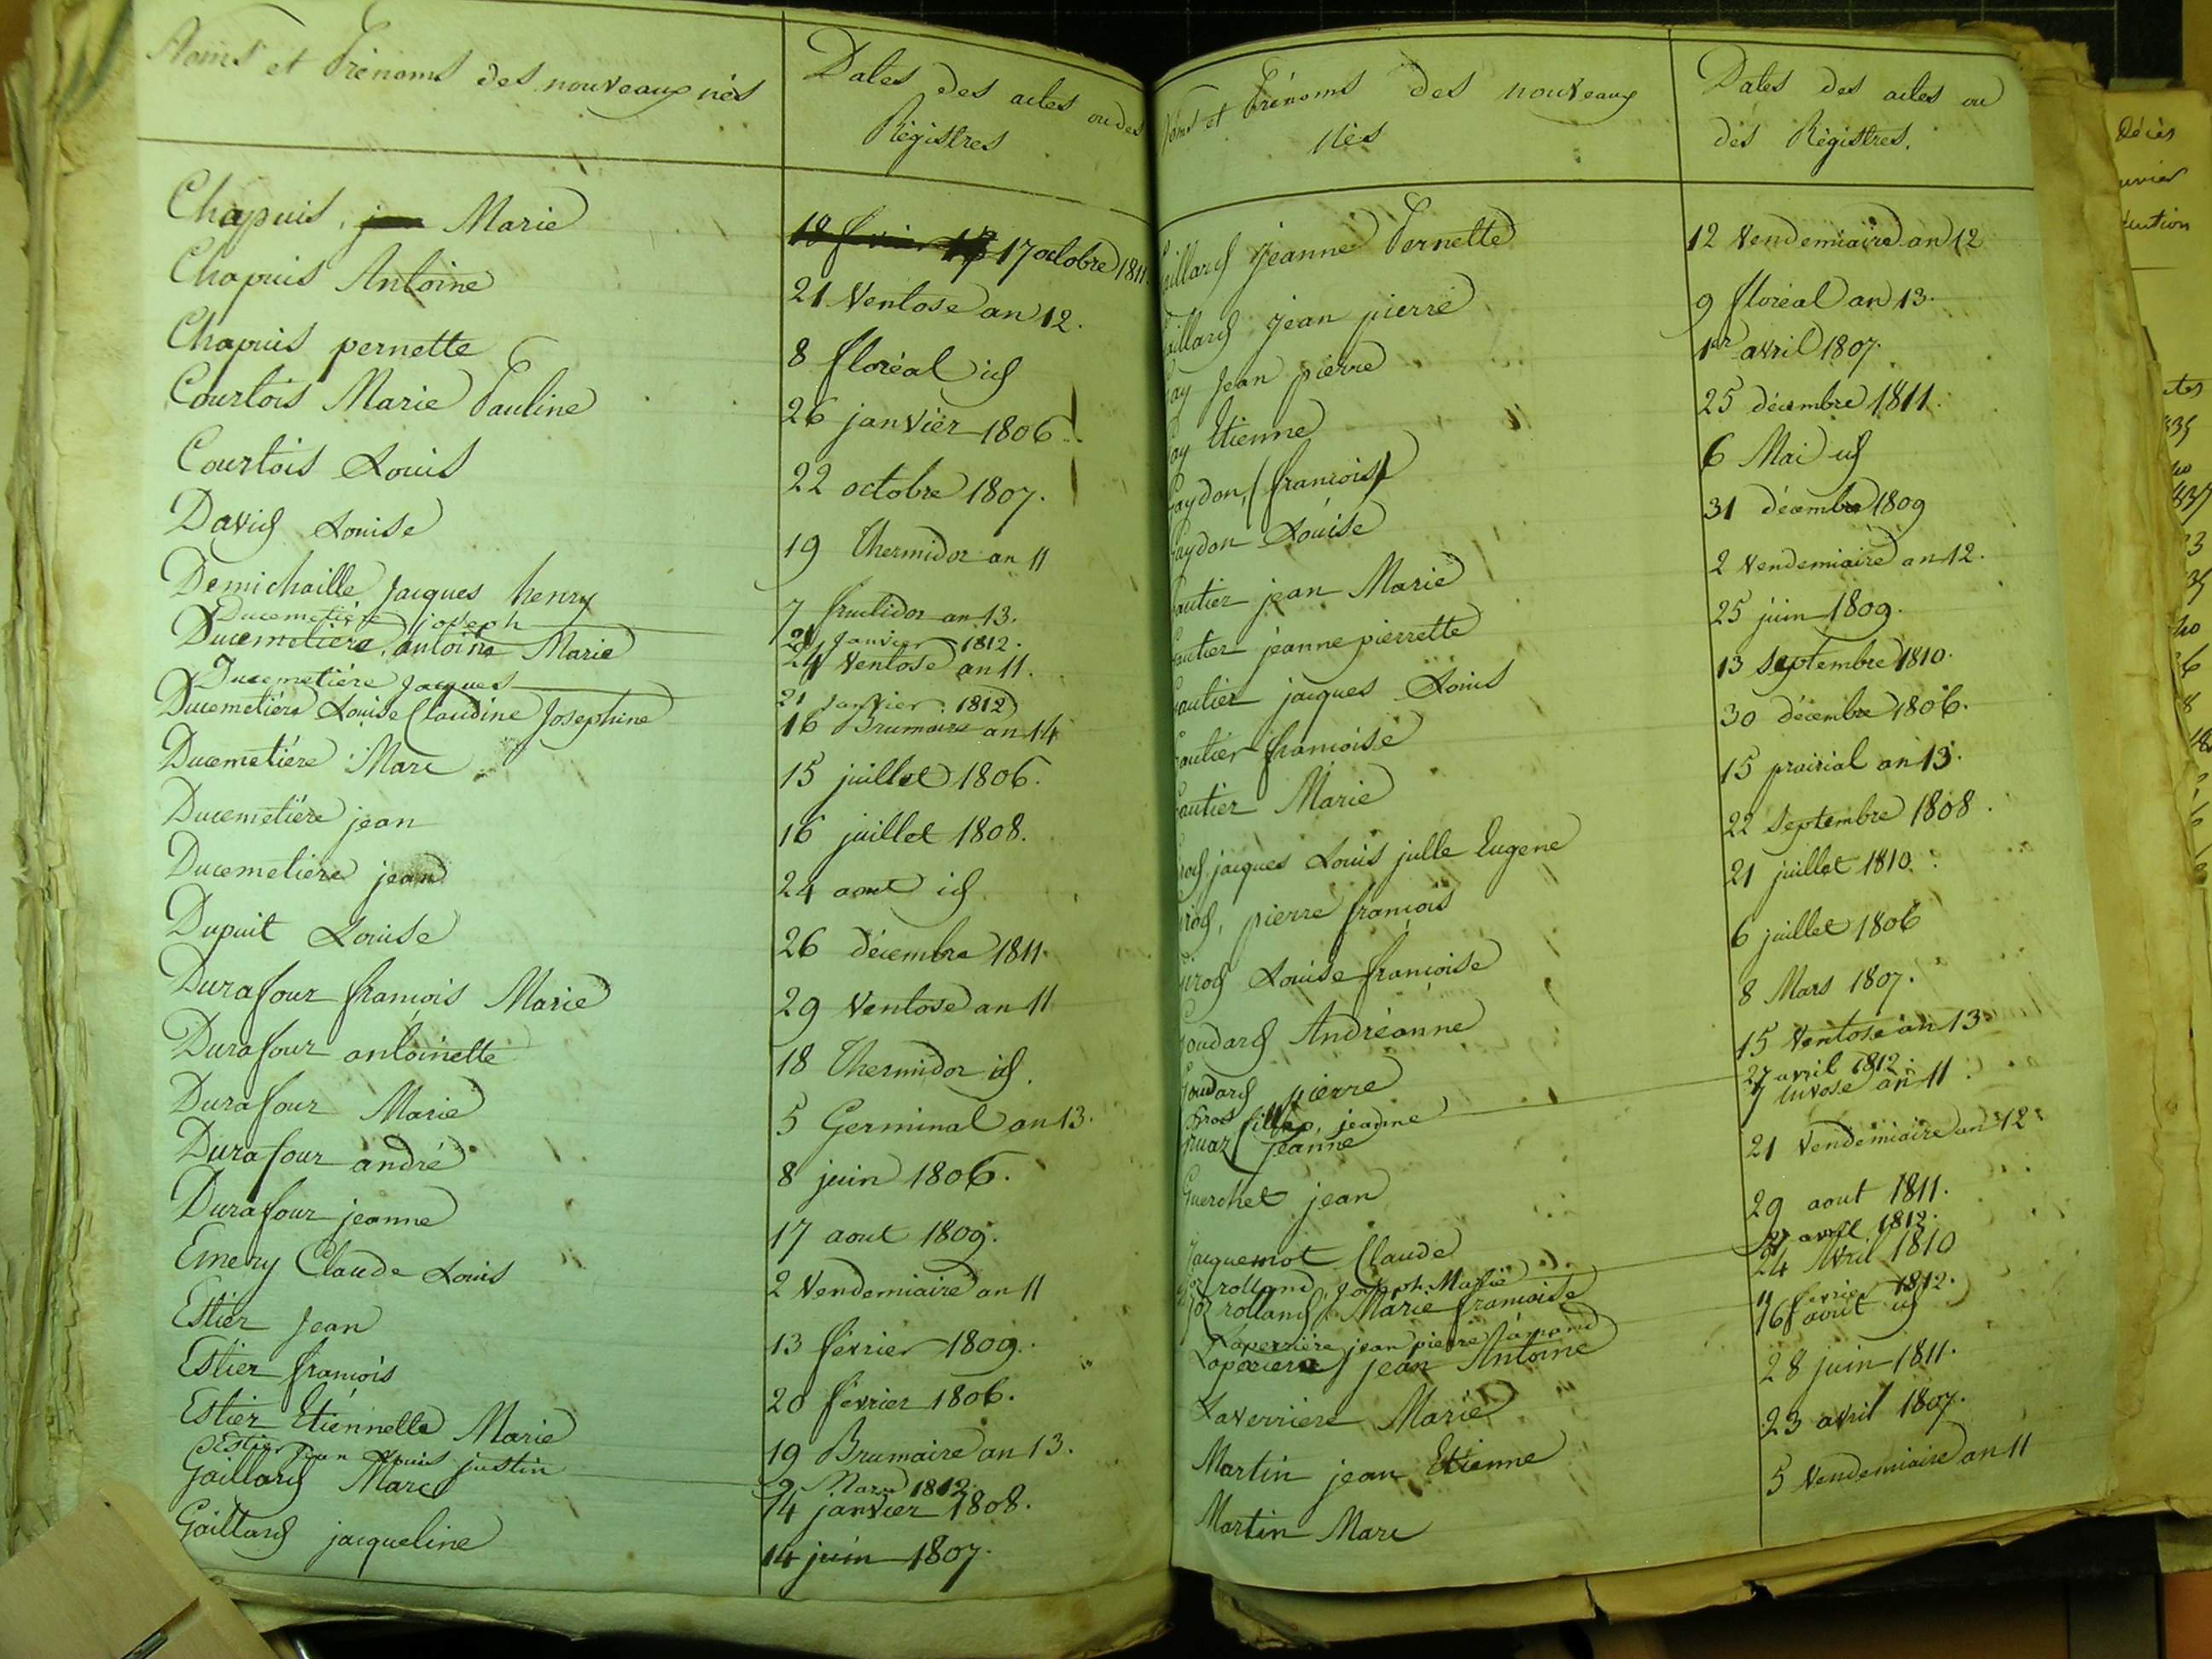 Noms et Prénoms des nouveaux nés
Dates des actes ou des
Régistres
Chapuis, Marie 17 octobre 1811.
Chapuis Antoine 21 Ventose an 12.
Chapuis pernette 8 floréal id
Courtois Marie Pauline 26 janvier 1806.
Courtois Louis 22 octobre 1807.
David Louise 19 Thermidor an 11
Demichaille Jacques henry 7 fructidor an 13.
Ducemetière joseph 21 Janvier 1812.
Ducemetière, antoine Marie 24 Ventose an 11.
Ducemetière Jacques 21 Janvier 1812
Ducemetière Louise Claudine Josephine 16 Brumaire an 14
Ducemetière Marc 15 juillet 1806.
Ducemetière jean 16 juillet 1808.
Ducemetiere jean 24 aout id
Dupuit Louise 26 décembre 1811.
Durafour francois Marie 29 Ventose an 11
Durafour antoinette 18 Thermidor id.
Durafour Marie 5 Germinal an 13.
Durafour andré 8 juin 1806.
Durafour jeanne 17 aout 1809.
Emery Claude Louis 2 Vendemiaire an 11
Estier Jean 13 février 1809.
Estier francois 20 février 1806.
Estier Etiennette Marie 19 Brumaire an 13.
Estier Jean Louis justin 29 Mars 1812.
Gaillard Marc 14 janvier 1808.
Gaillard jacqueline 14 juin 1807.
Noms et Prénoms des nouveaux
nés
Dates des actes ou
des Régistres.
aillard Jeanne Pernette 12 Vendemiaire an 12
aillard Jean pierre 9 floréal an 13.
ay Jean pierre 1er avril 1807.
ay Etienne 25 décembre 1811.
aydon, francois 6 Mai id
aydon Louise 31 décembre 1809
autier jean Marie 2 Vendemiaire an 12.
autier jeanne pierrette 25 juin 1809.
autier jacques Louis 13 Septembre 1810.
autier francoise 30 décembre 1806.
autier Marie 15 prairial an 13.
rod jacques Louis julle Eugene 22 septembre 1808.
irod, pierre francois 21 juillet 1810.
irod Louise francoise 6 juillet 1806
oudard Andréanne 8 Mars 1807.
oudard pierre 15 Ventose an 13
Gros fillep, jeanne 27 avril 1812.
ruaz Jeanne 7 nivose an 11.
Guerchet jean 21 Vendemiaire an 12.
Jacquemot Claude 29 aout 1811.
rolland, Joseph Marie avril 1812.
joz rolland, Marie francoise 24 Avril 1810
Laperrière jean pierre Lamand 11 fevrier 1812.
Laperiere jean Antoine 16 aout id
Laverriere Marie 28 juin 1811.
Martin jean Etienne 23 avril 1807.
Martin Marc 5 Vendemiaire an 11
Décès